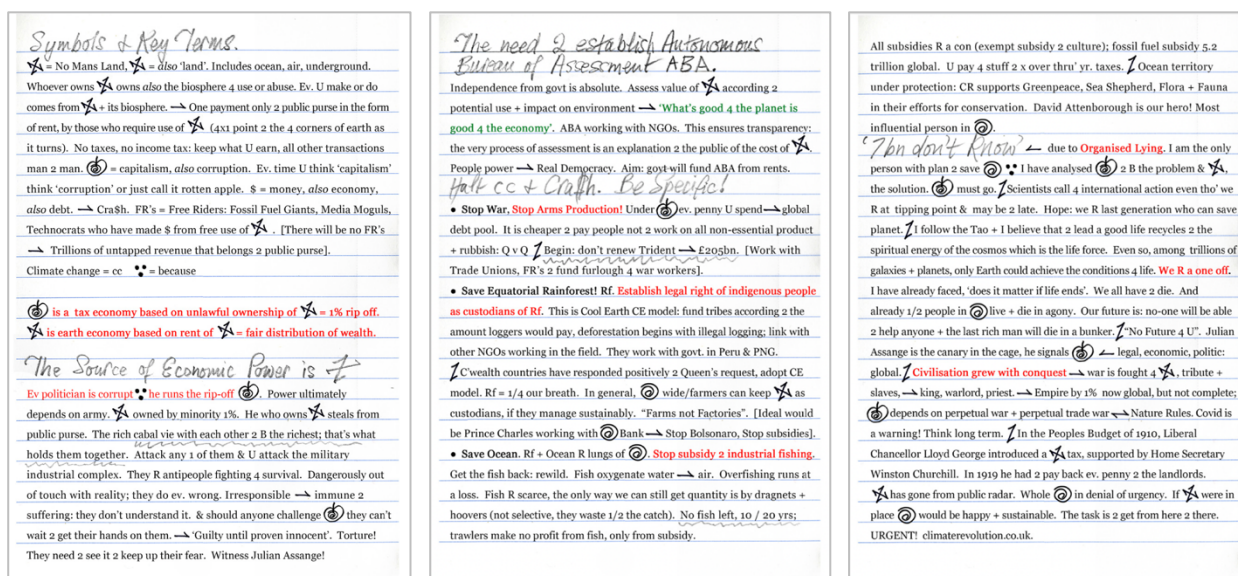 Symbols & Key Terms.
= No Mans Land, = also 'land'. Includes ocean, air, underground.
Whoever owns owns also the biosphere 4 use or abuse. Ev. U make or do
comes from + its biosphere. → One payment only 2 public purse in the form
of rent, by those who require use of (4x1 point 2 the 4 corners of earth as
it turns). No taxes, no income tax: keep what U earn, all other transactions
man 2 man. = capitalism, also corruption. Ev. time U think 'capitalism'
think 'corruption' or just call it rotten apple. $ = money, also economy,
also debt. → Cra$h. FR's = Free Riders: Fossil Fuel Giants, Media Moguls,
Technocrats who have made $ from free use of . [There will be no FR's
→ Trillions of untapped revenue that belongs 2 public purse].
Climate change = cc = because
is a tax economy based on unlawful ownership of = 1% rip off.
is earth economy based on rent of = fair distribution of wealth.
The Source of Economic Power is
Ev politician is corrupt he runs the rip-off . Power ultimately
depends on army. owned by minority 1%. He who owns steals from
public purse. The rich cabal vie with each other 2 B the richest; that's what
holds them together. Attack any 1 of them & U attack the military
industrial complex. They R antipeople fighting 4 survival. Dangerously out
of touch with reality; they do ev. wrong. Irresponsible → immune 2
suffering: they don't understand it. & should anyone challenge they can't
wait 2 get their hands on them. → 'Guilty until proven innocent'. Torture!
They need 2 see it 2 keep up their fear. Witness Julian Assange!
The need 2 establish Autonomous
Bureau of Assessment ABA.
Independence from govt is absolute. Assess value of according 2
potential use + impact on environment → 'What's good 4 the planet is
good 4 the economy'. ABA working with NGOs. This ensures transparency:
the very process of assessment is an explanation 2 the public of the cost of .
People power → Real Democracy. Aim: govt will fund ABA from rents.
Halt cc & Cra$h. Be Specific!
• Stop War, Stop Arms Production! Under ev. penny U spend → global
debt pool. It is cheaper 2 pay people not 2 work on all non-essential product
+ rubbish: Q v Q Begin: don't renew Trident → £205bn. [Work with
Trade Unions, FR's 2 fund furlough 4 war workers].
• Save Equatorial Rainforest! Rf. Establish legal right of indigenous people
as custodians of Rf. This is Cool Earth CE model: fund tribes according 2 the
amount loggers would pay, deforestation begins with illegal logging; link with
other NGOs working in the field. They work with govt. in Peru & PNG.
C'wealth countries have responded positively 2 Queen's request, adopt CE
model. Rf = 1/4 our breath. In general, wide/farmers can keep as
custodians, if they manage sustainably. "Farms not Factories". [Ideal would
be Prince Charles working with Bank → Stop Bolsonaro, Stop subsidies].
• Save Ocean. Rf + Ocean R lungs of . Stop subsidy 2 industrial fishing.
Get the fish back: rewild. Fish oxygenate water → air. Overfishing runs at
a loss. Fish R scarce, the only way we can still get quantity is by dragnets +
hoovers (not selective, they waste 1/2 the catch). No fish left, 10 / 20 yrs;
trawlers make no profit from fish, only from subsidy.
All subsidies R a con (exempt subsidy 2 culture); fossil fuel subsidy 5.2
trillion global. U pay 4 stuff 2 x over thru' yr. taxes. Ocean territory
under protection: CR supports Greenpeace, Sea Shepherd, Flora + Fauna
in their efforts for conservation. David Attenborough is our hero! Most
influential person in .
'7bn don't Know' ← due to Organised Lying. I am the only
person with plan 2 save I have analysed 2 B the problem & ,
the solution. must go. Scientists call 4 international action even tho' we
R at tipping point & may be 2 late. Hope: we R last generation who can save
planet. I follow the Tao + I believe that 2 lead a good life recycles 2 the
spiritual energy of the cosmos which is the life force. Even so, among trillions of
galaxies + planets, only Earth could achieve the conditions 4 life. We R a one off.
I have already faced, 'does it matter if life ends'. We all have 2 die. And
already 1/2 people in live + die in agony. Our future is: no-one will be able
2 help anyone + the last rich man will die in a bunker. "No Future 4 U". Julian
Assange is the canary in the cage, he signals ← legal, economic, politic:
global. Civilisation grew with conquest → war is fought 4 , tribute +
slaves, → king, warlord, priest. → Empire by 1% now global, but not complete;
depends on perpetual war + perpetual trade war ↔ Nature Rules. Covid is
a warning! Think long term. In the Peoples Budget of 1910, Liberal
Chancellor Lloyd George introduced a tax, supported by Home Secretary
Winston Churchill. In 1919 he had 2 pay back ev. penny 2 the landlords.
has gone from public radar. Whole in denial of urgency. If were in
place would be happy + sustainable. The task is 2 get from here 2 there.
URGENT! climaterevolution.co.uk.